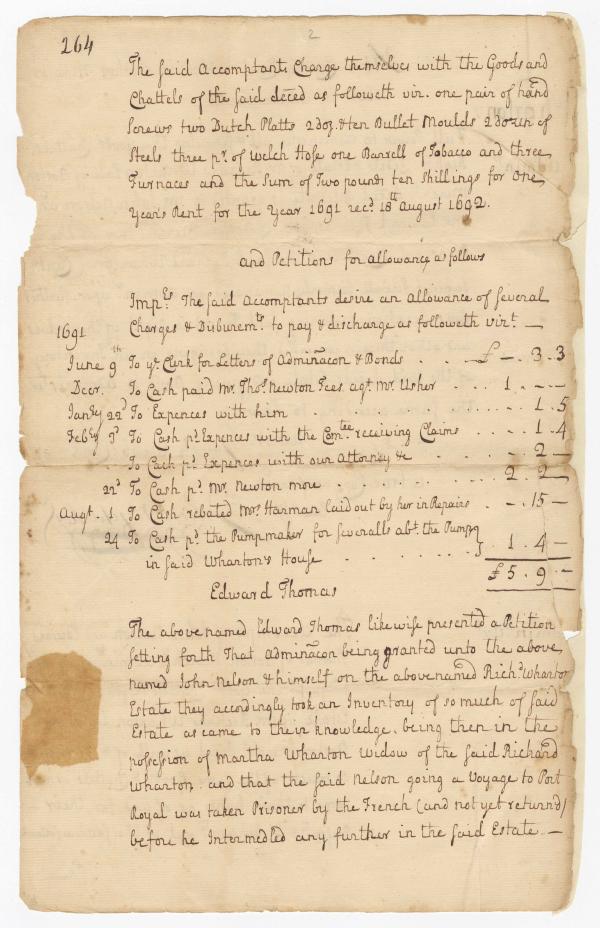 264
2
The said Accomptants Charge themselves with the Goods and
Chattels of the said deced as followeth viz. one pair of hand
Screws two Dutch Platts 2 doz. & ten Bullet Moulds 2 dozen of
Steels three pr. of Welch Hose one Barrell of Tobacco and three
Furnaces and the Sum of Two pounds ten Shillings for One
Years Rent for the Year 1691 recd. 18th August 1692.
and Petitions for allowance as follows
Imprs The said Accomptants desire an Allowance of Several
Charges & Disburemts. to pay & discharge as followeth vizt. —
1691
June 9th To ye. Clerk for Letters of Adminacon & Bonds . . . £ — . 3 . 3
Decor. To Cash paid Mr. Thos. Newton Fees agt. Mr. Usher . . . 1 . — . —
Janry 22d To Expences with him . . . . . . . . — . 1 . 5
Febry 3d To Cash pd. Expences with the Comtee. receiving Claims . . . . — . 1 . 4
To Cash pd. Expences with our Attorney & . . . . . — . 2 —
22d To Cash pd. Mr. Newton more . . . . . . . 2 . 2 —
Augt. 1 To Cash rebated Mrs. Harman laid out by her in Repairs . — . 15 —
24 To Cash pd. the Pumpmaker for severalls abt. the Pump
in said Wharton's House . . . . . . . } . 1 . 4 —
£5 . 9 . —
Edward Thomas
The above named Edward Thomas likewise presented a Petition
setting forth That Adminacon being granted unto the above
named John Nelson & himself on the abovenamed Richd. Wharton
Estate they accordingly took an Inventory of so much of said
Estate as came to their knowledge, being then in the
possession of Martha Wharton Widow of the said Richard
Wharton and that the said Nelson going a Voyage to Port
Royal was taken Prisoner by the French (and not yet returnd)
before he Intermedled any further in the said Estate. —